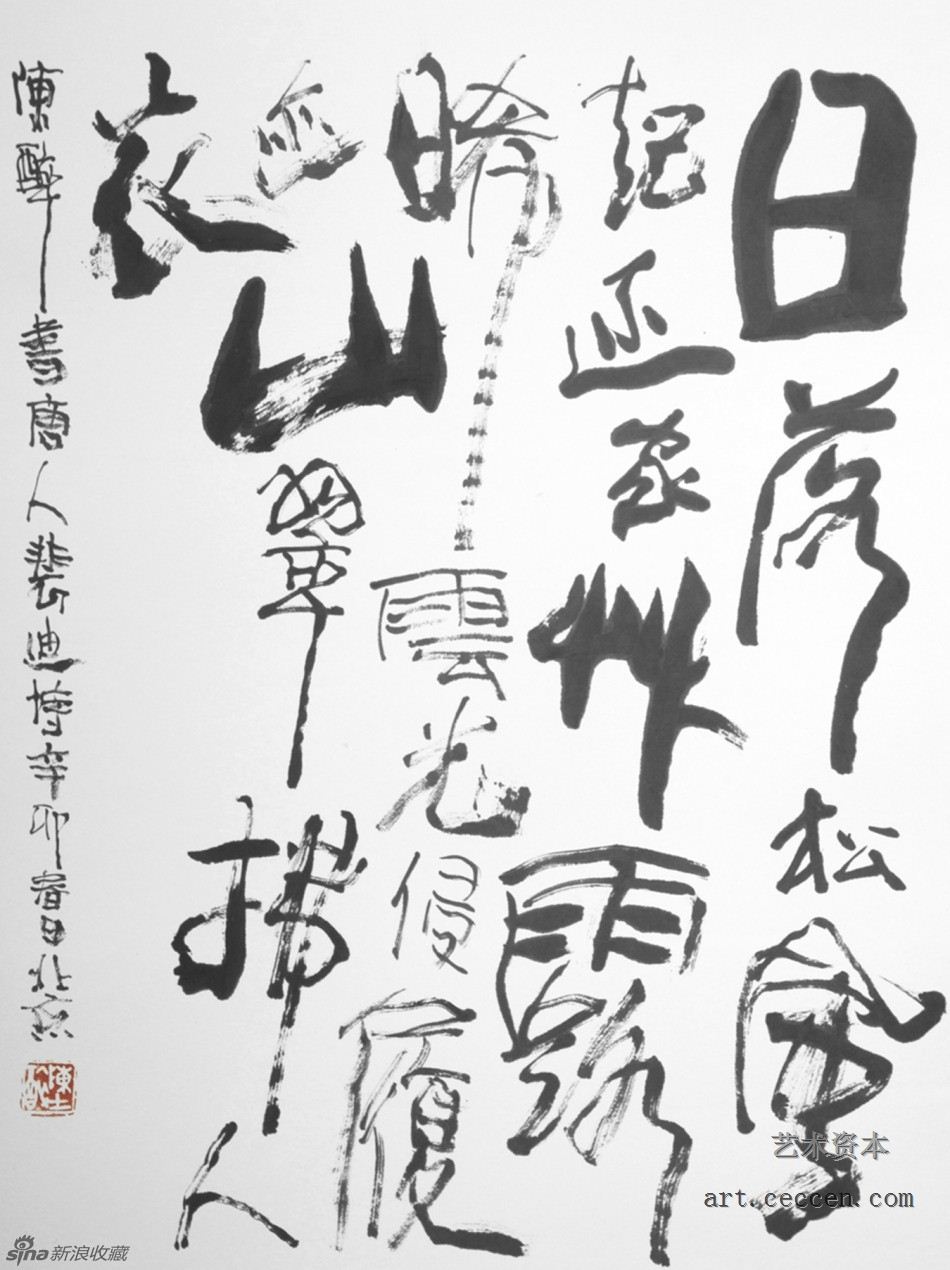 日落松風
起还家艸露
晞雲光侵履
迹山翠拂人
衣
陳醉書唐人裴迪詩辛卯春日北京
艺术资本
art.ceccen.com
sina新浪收藏